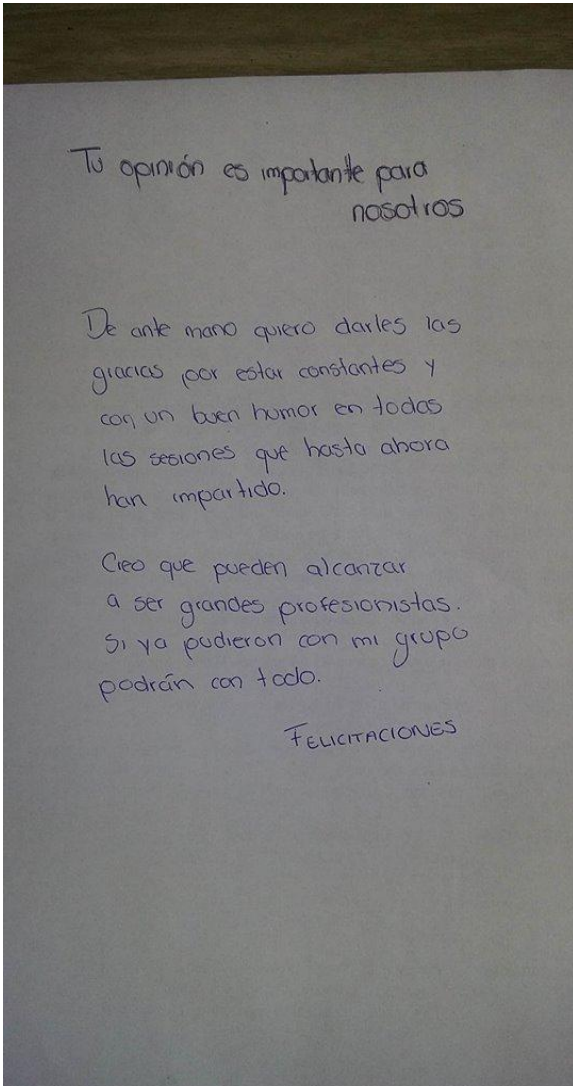 Tu opinión es importante para
nosotros
De ante mano quiero darles las
gracias por estar constantes y
con un buen humor en todas
las sesiones que hasta ahora
han impartido.
Creo que pueden alcanzar
a ser grandes profesionistas.
Si ya pudieron con mi grupo
podrán con todo.
FELICITACIONES